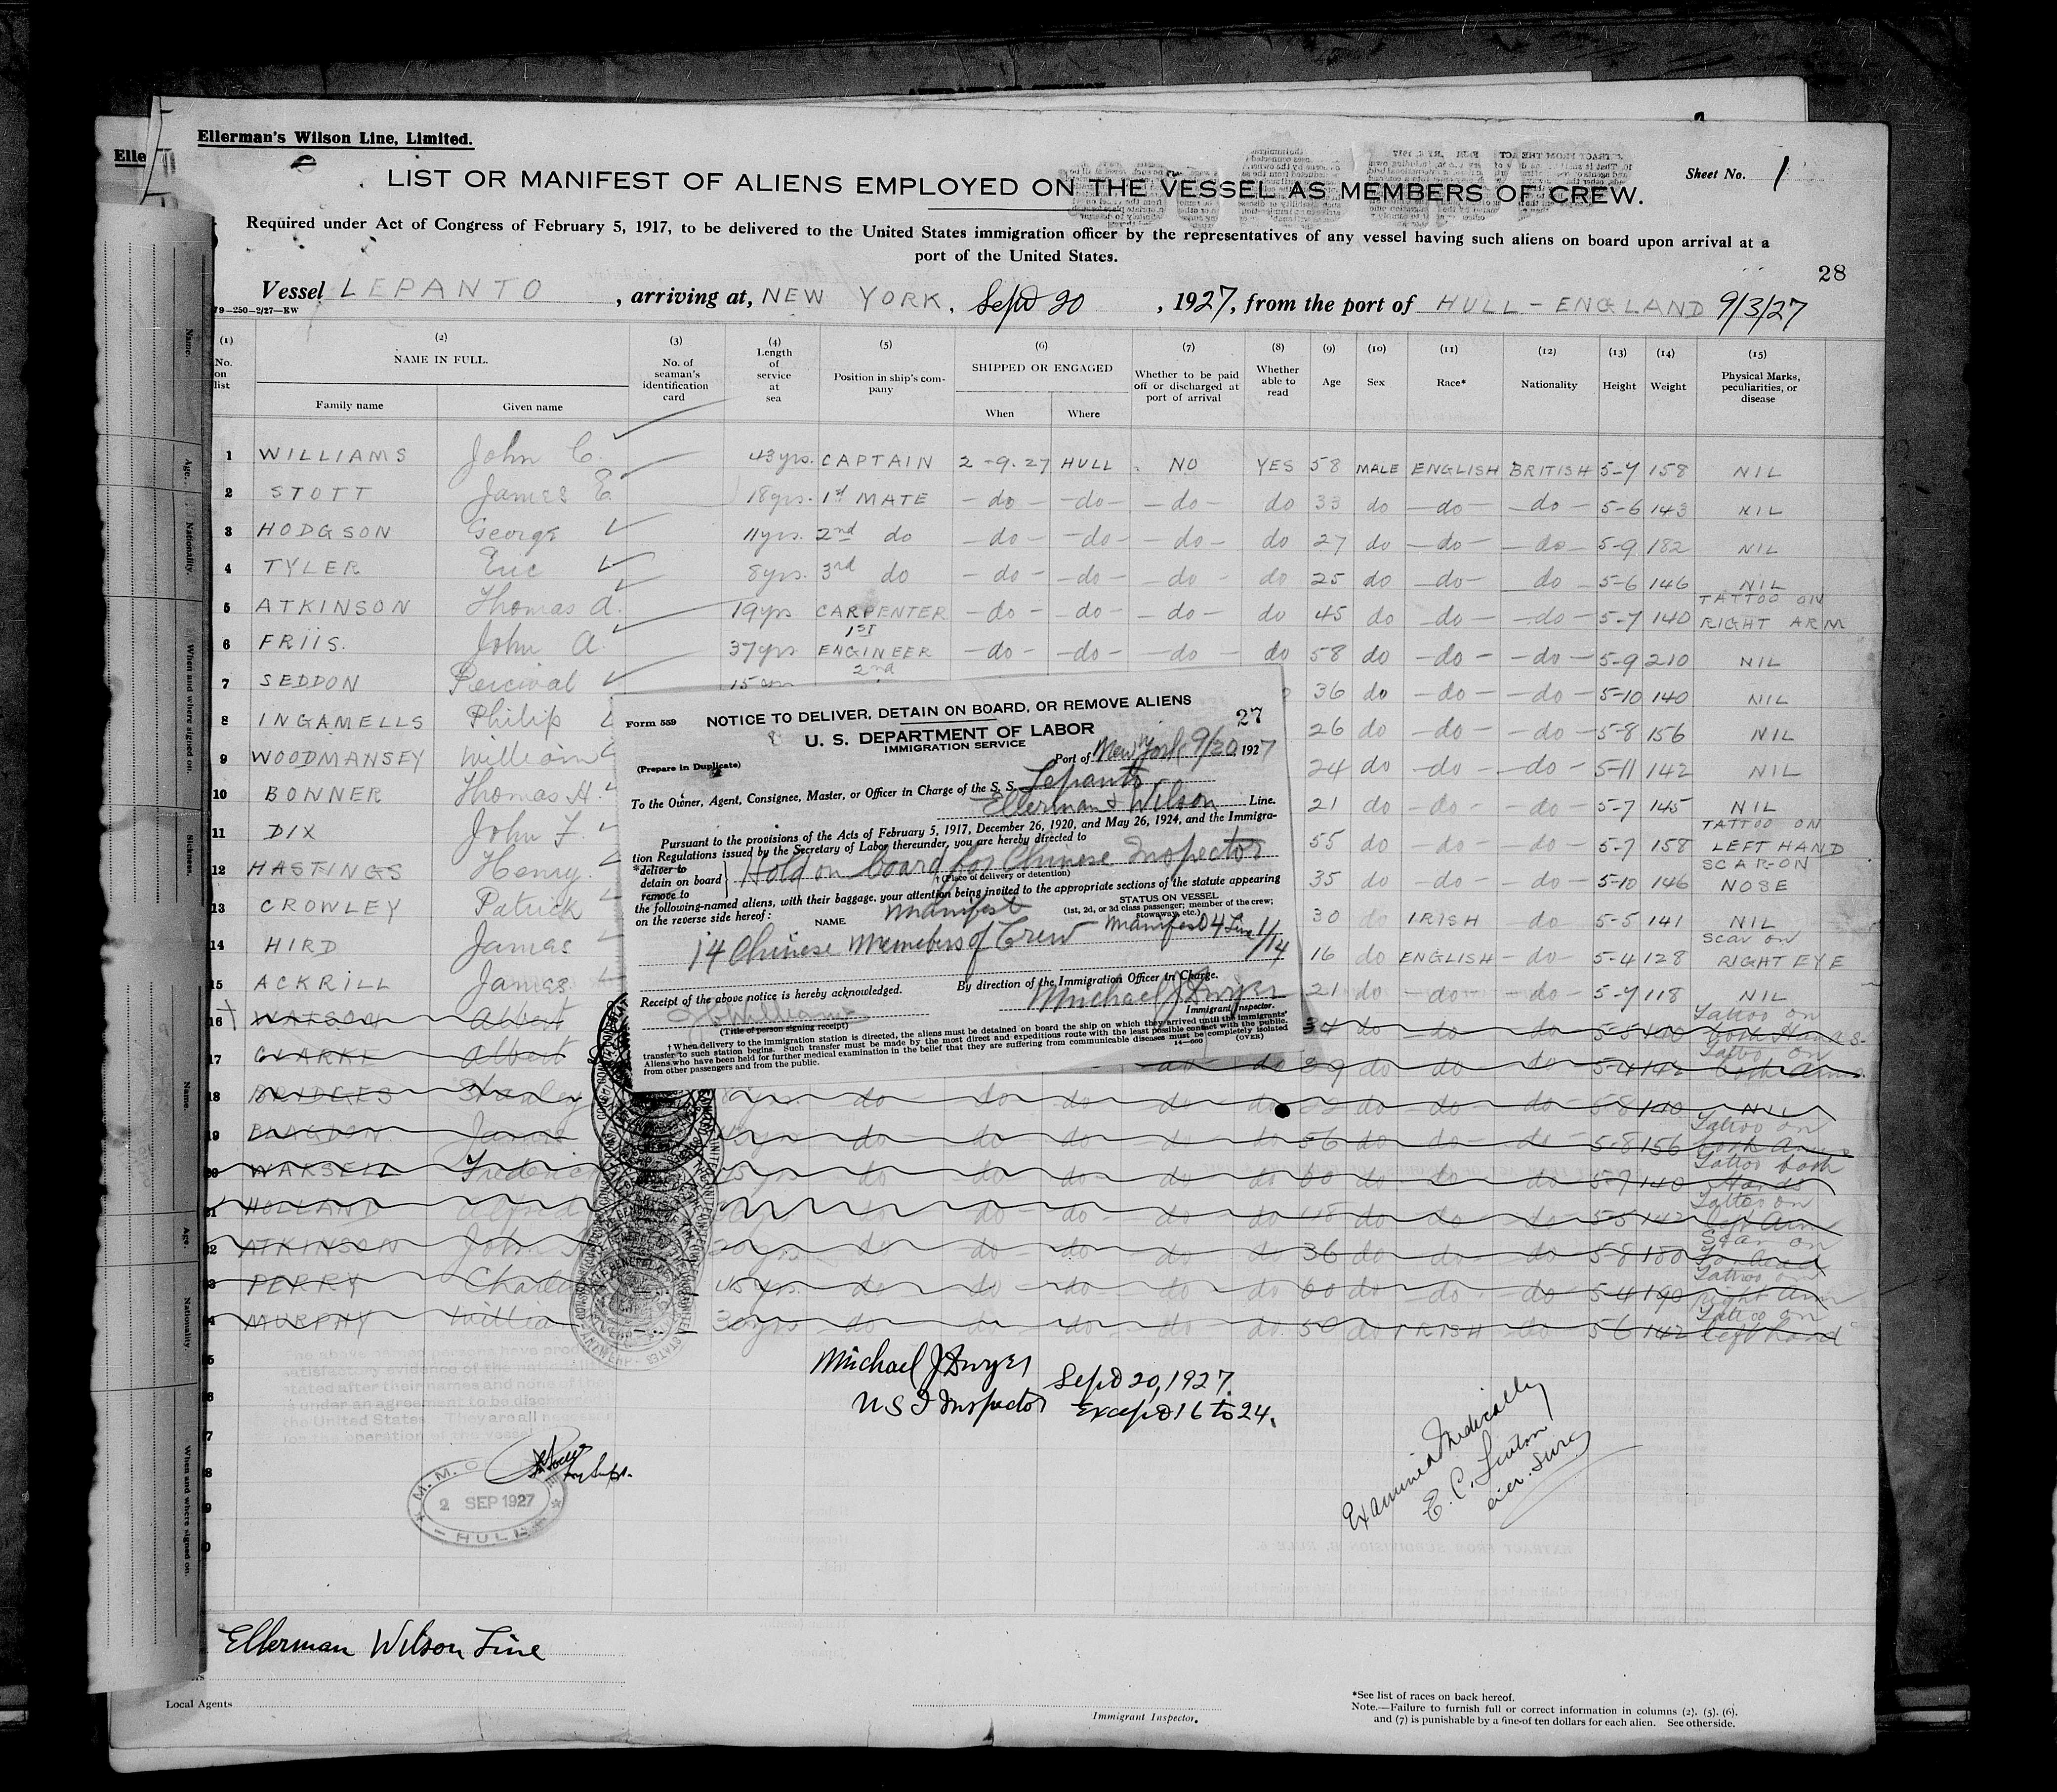 Ellerman's Wilson Line, Limited.
Elle
Sheet No. 1
LIST OR MANIFEST OF ALIENS EMPLOYED ON THE VESSEL AS MEMBERS OF CREW.
Required under Act of Congress of February 5, 1917, to be delivered to the United States immigration officer by the representatives of any vessel having such aliens on board upon arrival at a
port of the United States.
28
Vessel LEPANTO, arriving at, NEW YORK, Sept 20, 1927, from the port of HULL - ENGLAND 9/3/27
79-250-2/27-EW
(1) (2) (3) (4) (5) (6) (7) (8) (9) (10) (11) (12) (13) (14) (15)
No. on list NAME IN FULL. Family name Given name No. of seaman's identification card Length of service at sea Position in ship's company SHIPPED OR ENGAGED When Where Whether to be paid off or discharged at port of arrival Whether able to read Age Sex Race* Nationality Height Weight Physical Marks, peculiarities, or disease
1 WILLIAMS John C. 43 yrs. CAPTAIN 2-9.27 HULL NO YES 58 MALE ENGLISH BRITISH 5-7 158 NIL
2 STOTT James E 18 yrs. 1st MATE -do- -do- -do- do 33 do -do- -do- 5-6 143 NIL
3 HODGSON George 11 yrs. 2nd do -do- -do- -do- do 27 do -do- -do- 5-9 182 NIL
4 TYLER Eric 8 yrs. 3rd do -do- -do- -do- do 25 do -do- do 5-6 146 NIL
5 ATKINSON Thomas A. 19 yrs CARPENTER -do- -do- -do- do 45 do -do- -do- 5-7 140 TATTOO ON RIGHT ARM
6 FRIIS. John A. 37 yrs 1ST ENGINEER -do- -do- -do- do 58 do -do- -do- 5-9 210 NIL
7 SEDDON Percival 2nd 36 do -do- -do- 5-10 140 NIL
8 INGAMELLS Philip 26 do -do- -do- 5-8 156 NIL
9 WOODMANSEY William 24 do -do- -do- 5-11 142 NIL
10 BONNER Thomas H. 21 do -do- -do- 5-7 145 NIL
11 DIX John F. 55 do -do- -do- 5-7 158 TATTOO ON LEFT HAND
12 HASTINGS Henry. 35 do -do- -do- 5-10 146 SCAR ON NOSE
13 CROWLEY Patrick 30 do IRISH do 5-5 141 NIL
14 HIRD James 16 do ENGLISH -do- 5-4 128 Scar on RIGHT EYE
15 ACKRILL James 21 do -do- -do- 5-7 118 NIL
16 WATSON Albert 34 do do do 5-5 Tattoo on both Hands
17 CLARKE Albert do do 39 do do do 5-4 142 Tattoo on both Arms
18 BRIDGES Stanley do do do do do do do do 5-8 140 NIL
19 BLAGDON James do do do do do 56 do do do 5-8 156 Tattoo on both
20 WARSELL Frederick do do do do do 60 do do do 5-7 140 Tattoo both Hands
21 HOLLAND do do do do do do do 5-5 142 Tattoo on left Arm
22 ATKINSON John do do do do 36 do do do 5-8 180 Scar on
23 PERRY Charles 45 yrs. do do do do do 60 do do do 5-4 190 Tattoo on right Arm
24 MURPHY William 30 yrs do do do do do 50 do IRISH do 5-6 142 Tattoo on left hand
Form 559
NOTICE TO DELIVER, DETAIN ON BOARD, OR REMOVE ALIENS
27
U. S. DEPARTMENT OF LABOR
IMMIGRATION SERVICE
(Prepare in Duplicate)
Port of New York 9/20, 1927
To the Owner, Agent, Consignee, Master, or Officer in Charge of the S. S. Lepanto
Ellerman & Wilson Line.
Pursuant to the provisions of the Acts of February 5, 1917, December 26, 1920, and May 26, 1924, and the Immigra-
tion Regulations issued by the Secretary of Labor thereunder, you are hereby directed to
*deliver to
detain on board
remove to
Hold on board for Chinese Inspector
†(Place of delivery or detention)
the following-named aliens, with their baggage, your attention being invited to the appropriate sections of the statute appearing
on the reverse side hereof:
NAME
STATUS ON VESSEL
(1st, 2d, or 3d class passenger; member of the crew;
stowaway, etc.)
Manifest
14 Chinese Memebers of Crew Manifest 04 Line 1/14
By direction of the Immigration Officer in Charge.
Receipt of the above notice is hereby acknowledged.
Michael J Dwyer
Immigrant Inspector.
J C Williams
(Title of person signing receipt)
†When delivery to the immigration station is directed, the aliens must be detained on board the ship on which they arrived until the immigrants'
transfer to such station begins. Such transfer must be made by the most direct and expeditious route with the least possible contact with the public.
Aliens who have been held for further medical examination in the belief that they are suffering from communicable diseases must be completely isolated
from other passengers and from the public.
14-600
(OVER)
Michael J Dwyer Sept 20, 1927.
U S I Inspector Except 16 to 24.
Examined Medically
E. C. Linton
M. M. O
2 SEP 1927
HULL
Ellerman Wilson Line
Local Agents
Immigrant Inspector.
*See list of races on back hereof.
Note.—Failure to furnish full or correct information in columns (2), (5), (6),
and (7) is punishable by a fine of ten dollars for each alien. See other side.